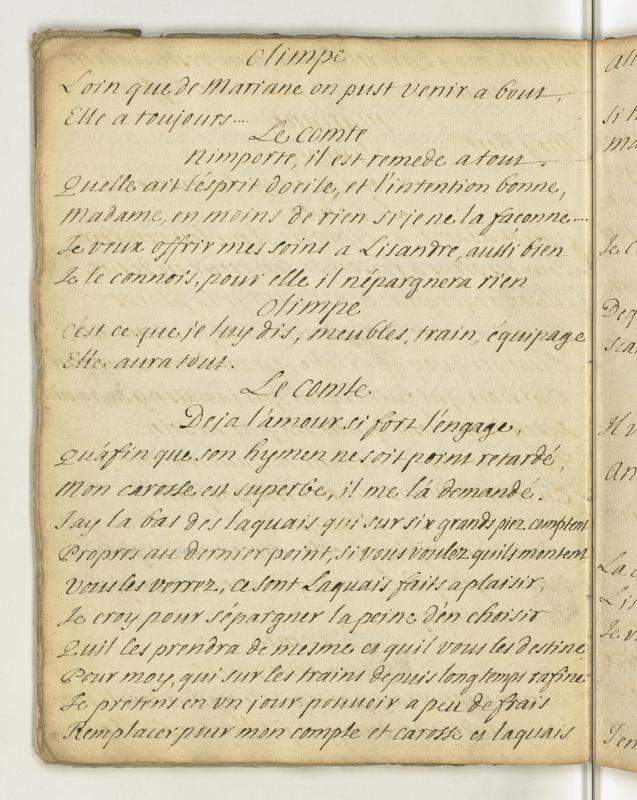 Olimpe
Loin que de Mariane on pust venir a bout,
Elle a toujours....
Le comte
Nimporte, il est remede a tout.
Quelle ait l'ésprit docile, et l'intention bonne,
Madame, en moins de rien si je ne la façonne....
Je veux offrir mes soins a Lisandre, aussi bien
Je le connois, pour elle il n'épargnera rien
Olimpe
C'est ce que je luy dis, meubles, train, équipage
Elle aura tout.
Le comte
Deja l'amour si fort l'engage,
Qu'afin que son hymen ne soit point retardé,
Mon carosse est superbe, il me l'a demandé.
Jay la bas des laquais qui sur six grands piez comptent
Propres au dernier point, si vous voulez quils montent
Vous les verrez, ce sont Laquais faits a plaisir,
Je croy pour s'épargner la peine d'en choisir
Quil les prendra de mesme et quil vous les destine
Pour moy, qui sur les trains depuis longtemps rafine
Je pretens en un jour pouvoir a peu de frais
Remplacer pour mon compte et carosse et laquais